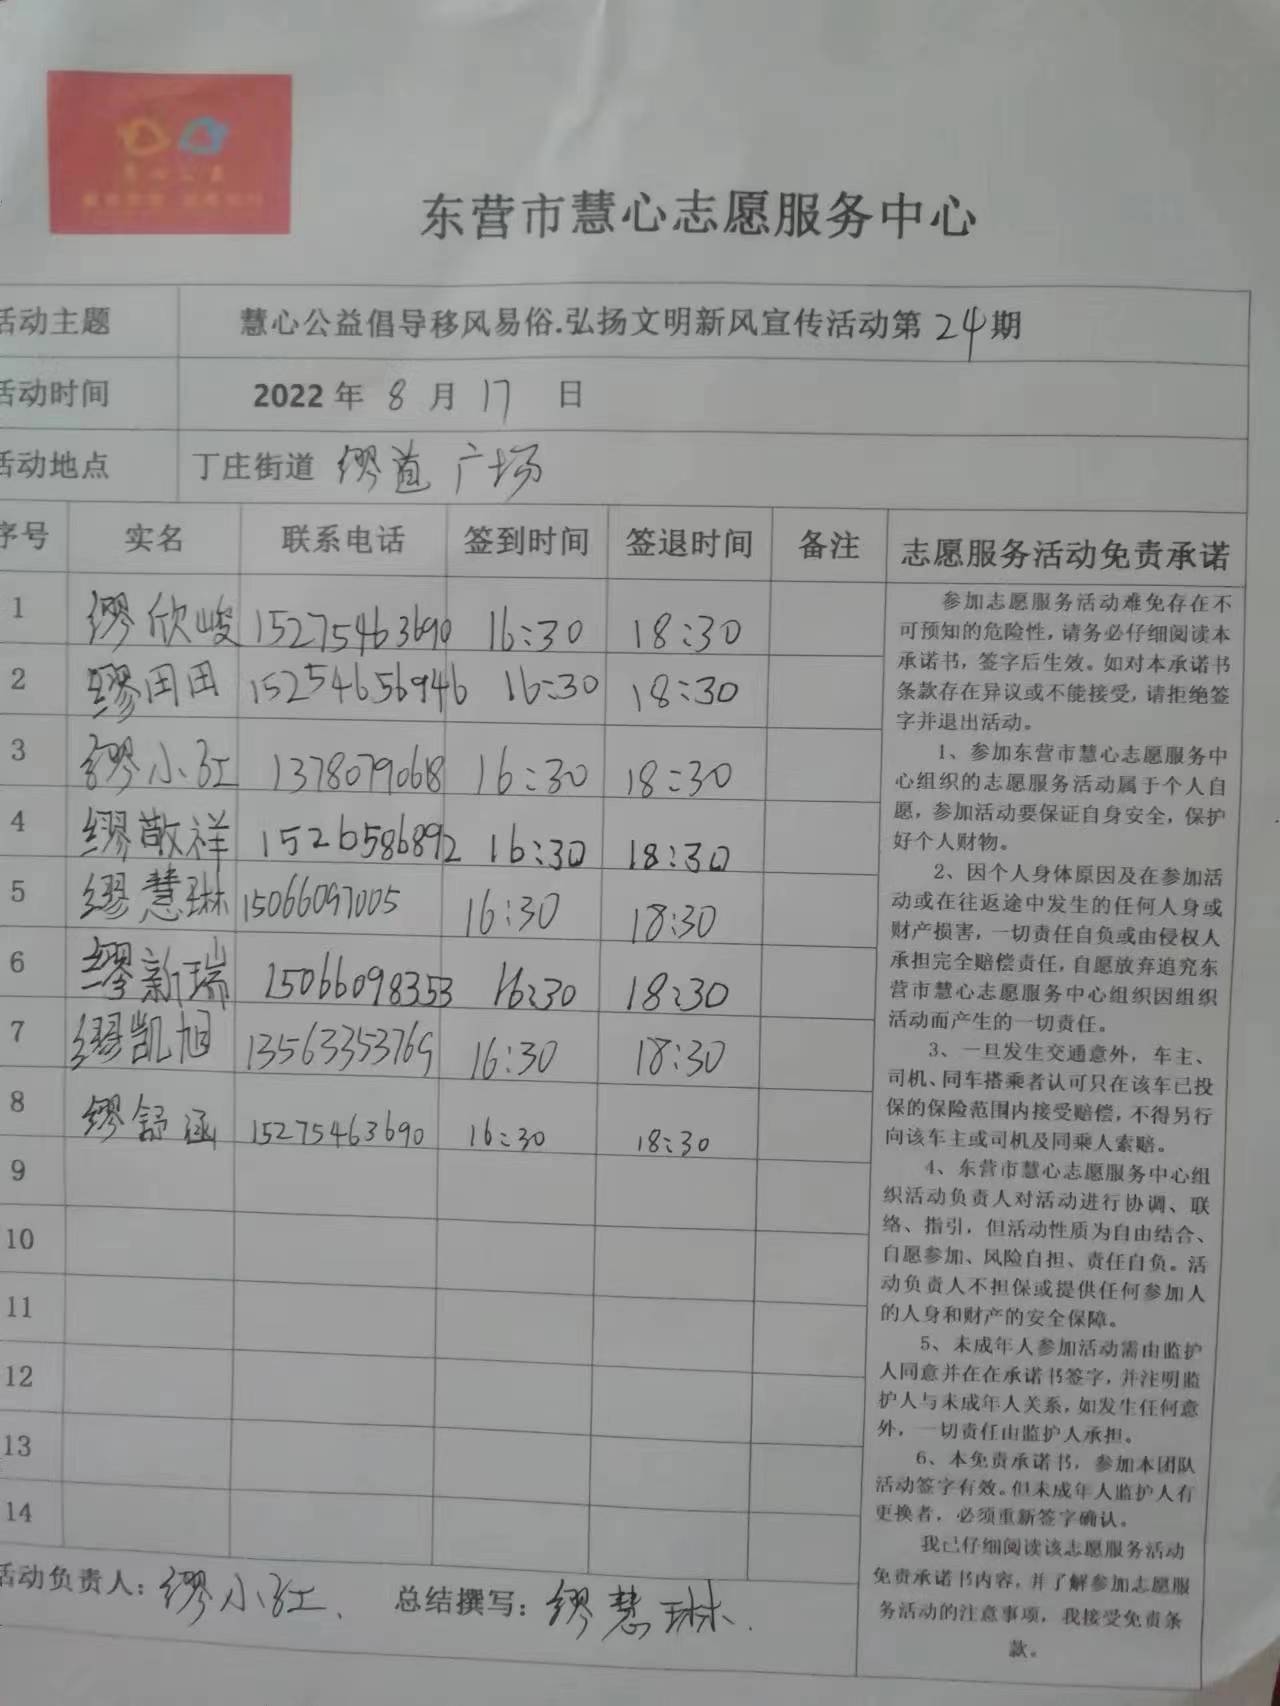 慧心公益
东营市慧心志愿服务中心
活动主题 慧心公益倡导移风易俗.弘扬文明新风宣传活动第24期
活动时间 2022年8月17日
活动地点 丁庄街道 缪道广场
序号 实名 联系电话 签到时间 签退时间 备注 志愿服务活动免责承诺
1 缪欣峻 15275463690 16:30 18:30
2 缪田田 15254656946 16:30 18:30
3 缪小红 1378079068 16:30 18:30
4 缪敬祥 1526586892 16:30 18:30
5 缪慧琳 15066097005 16:30 18:30
6 缪新瑞 15066098353 16:30 18:30
7 缪凯旭 13563353769 16:30 18:30
8 缪舒涵 15275463690 16:30 18:30
9
10
11
12
13
14
参加志愿服务活动难免存在不
可预知的危险性，请务必仔细阅读本
承诺书，签字后生效。如对本承诺书
条款存在异议或不能接受，请拒绝签
字并退出活动。
1、参加东营市慧心志愿服务中
心组织的志愿服务活动属于个人自
愿，参加活动要保证自身安全，保护
好个人财物。
2、因个人身体原因及在参加活
动或在往返途中发生的任何人身或
财产损害，一切责任自负或由侵权人
承担完全赔偿责任，自愿放弃追究东
营市慧心志愿服务中心组织因组织
活动而产生的一切责任。
3、一旦发生交通意外，车主、
司机、同车搭乘者认可只在该车已投
保的保险范围内接受赔偿，不得另行
向该车主或司机及同乘人索赔。
4、东营市慧心志愿服务中心组
织活动负责人对活动进行协调、联
络、指引，但活动性质为自由结合、
自愿参加、风险自担、责任自负。活
动负责人不担保或提供任何参加人
的人身和财产的安全保障。
5、未成年人参加活动需由监护
人同意并在在承诺书签字，并注明监
护人与未成年人关系，如发生任何意
外，一切责任由监护人承担。
6、本免责承诺书，参加本团队
活动签字有效。但未成年人监护人有
更换者，必须重新签字确认。
我已仔细阅读该志愿服务活动
免责承诺书内容，并了解参加志愿服
务活动的注意事项，我接受免责条
款。
活动负责人：缪小红、 总结撰写：缪慧琳.